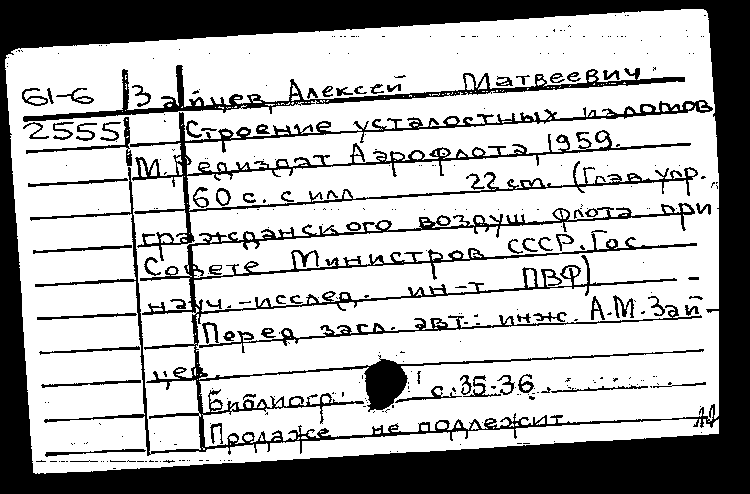 61-6 Зайцев, Алексей Матвеевич.
2555 Строение усталостных изломов
М., Редиздат Аэрофлота, 1959.
60 с. с илл 22 cm. (Глав. упр.
гражданского воздуш. флота при
Совете Министров СССР. Гос.
науч.-исслед. ин-т ГВФ)
Перед загл. авт.: инж. А.М. Зай-
цев.
Библиогр. с. 35-36.
Продаже не подлежит.